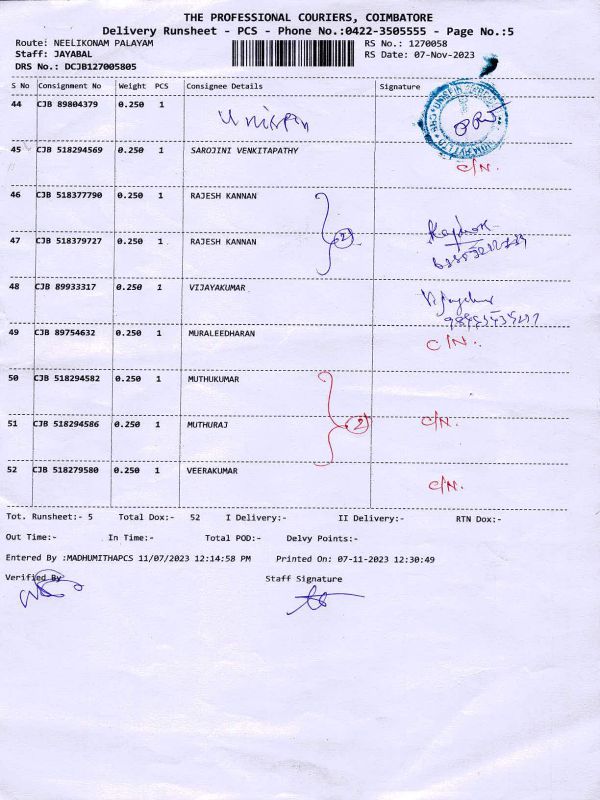 THE PROFESSIONAL COURIERS, COIMBATORE
Delivery Runsheet - PCS - Phone No.:0422-3505555 - Page No.:5
Route: NEELIKONAM PALAYAM RS No.: 1270058
Staff: JAYABAL RS Date: 07-Nov-2023
DRS No.: DCJB127005805
S No Consignment No Weight PCS Consignee Details Signature
44 CJB 89804379 0.250 1 Unispin
45 CJB 518294569 0.250 1 SAROJINI VENKITAPATHY C/N.
46 CJB 518377790 0.250 1 RAJESH KANNAN
47 CJB 518379727 0.250 1 RAJESH KANNAN 2
48 CJB 89933317 0.250 1 VIJAYAKUMAR
49 CJB 89754632 0.250 1 MURALEEDHARAN C/N.
50 CJB 518294582 0.250 1 MUTHUKUMAR
51 CJB 518294586 0.250 1 MUTHURAJ 2 C/N.
52 CJB 518279580 0.250 1 VEERAKUMAR C/N.
Tot. Runsheet:- 5 Total Dox:- 52 I Delivery:- II Delivery:- RTN Dox:-
Out Time:- In Time:- Total POD:- Delvy Points:-
Entered By :MADHUMITHAPCS 11/07/2023 12:14:58 PM Printed On: 07-11-2023 12:30:49
Verified By Staff Signature